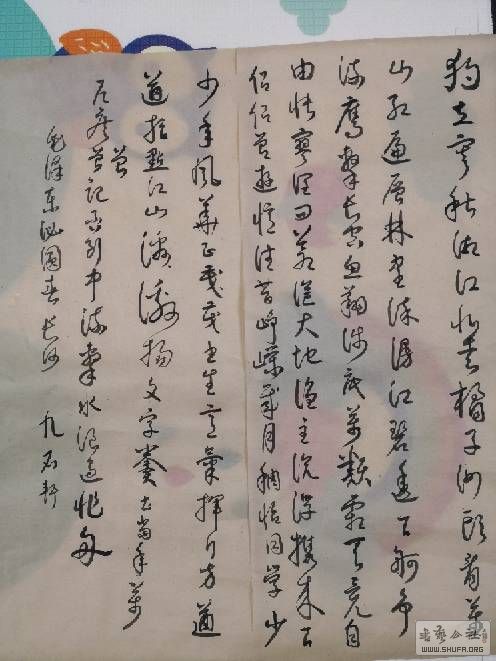 独立寒秋湘江北去橘子洲头看萬
山红遍层林尽染漫江碧透百舸争
流鹰击长空鱼翔浅底萬類霜天竞自
由怅寥廓问苍茫大地谁主沉浮携来百
侣侣曾遊忆往昔峥嵘岁月稠恰同学少
少年风华正茂书生意氣挥斥方遒
遒指點江山激扬文字粪土当年萬
户侯曾记否到中流击水浪遏飞舟
曾
毛泽东沁园春长沙 九石轩
书艺公社
WWW.SHUFA.ORG